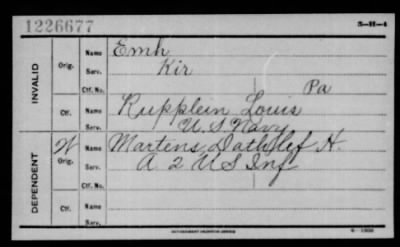 1226677
3-H-4
INVALID
Orig.
Name Emh
Serv. Kir
Ctf. No. Pa
Ctf.
Name Rupplein Louis
Serv. U.S Navy
DEPENDENT
W
Orig.
Name Martens Dathlef H.
Serv. A 2 US Inf
Ctf. No.
Ctf.
Name
Serv.